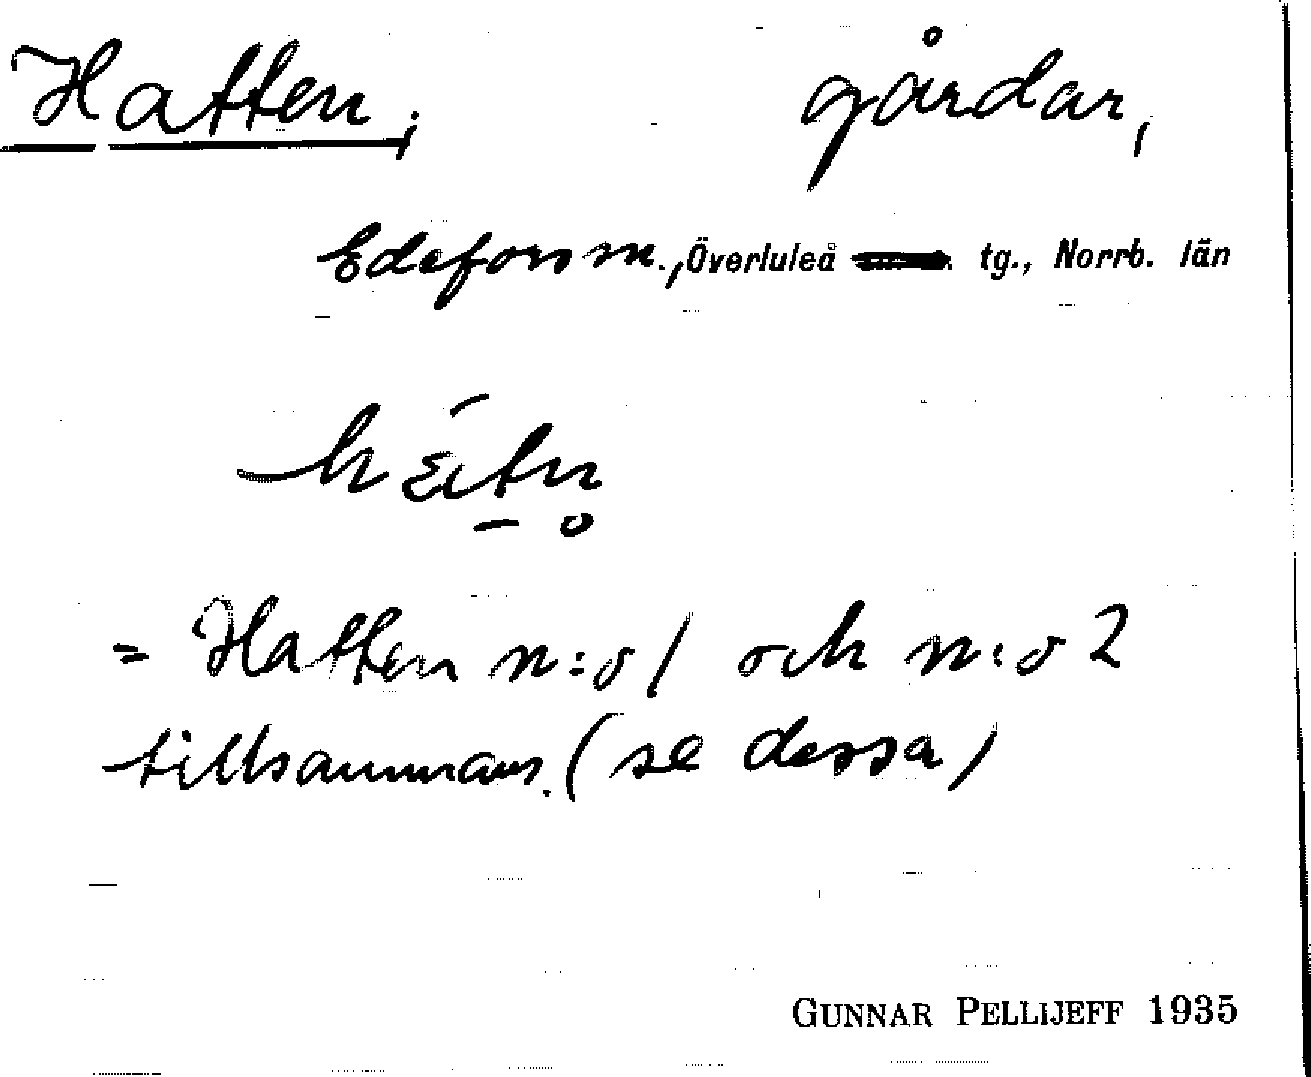 Hatten, gårdar,
Edefors sn., Överluleå tg., Norrb. län
= Hatten n:o 1 och n:o 2
tillsammans. (se dessa)
GUNNAR PELLIJEFF 1935